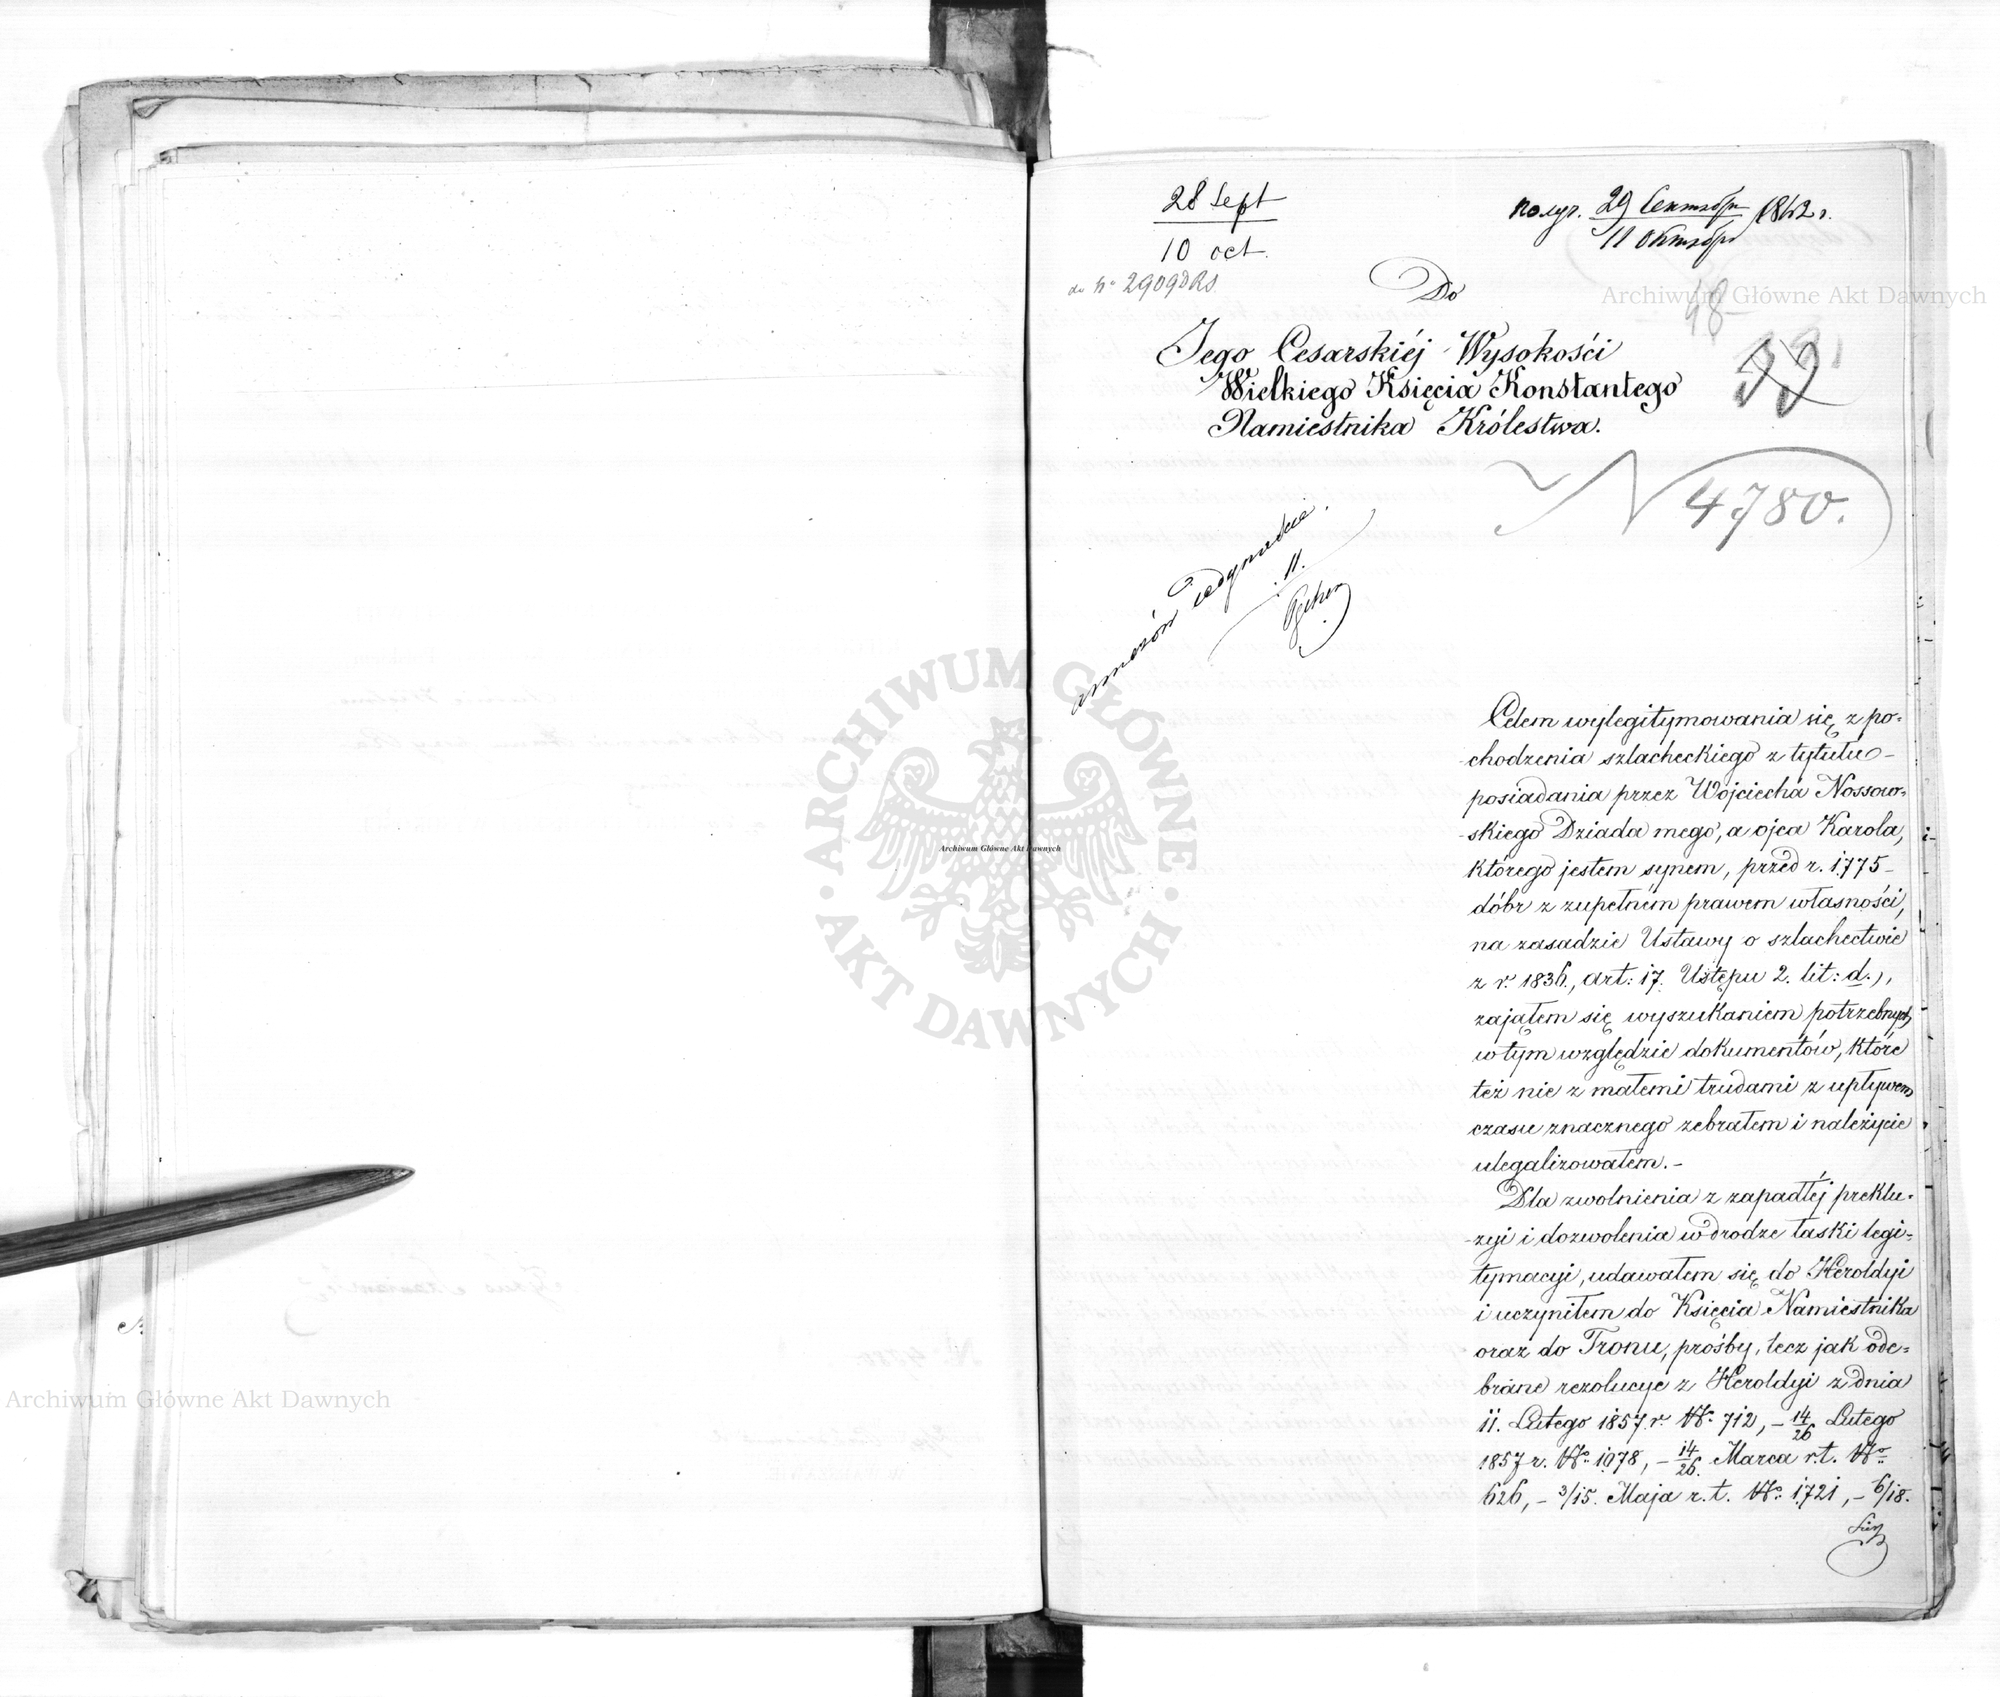 28 Sept
10 oct.
do No 2909 DRS
получ. 29 Сентября 1862 г.
11 Октября
Do
Jego Cesarskiéj Wysokości
Wielkiego Księcia Konstantego
Namiestnika Królestwa.
48
N 4780.
11.
Celem wylegitymowania się z po-
chodzenia szlacheckiego z tytułu
posiadania przez Wojciecha Nossow-
skiego Dziada mego, a ojca Karola,
którego jestem synem, przed r. 1775
dóbr z zupełném prawem własności,
na zasadzie Ustawy o szlachectwie
z r. 1836., art: 17. Ustępu 2. lit: d.),
zająłem się wyszukaniem potrzebnych
w tym względzie dokumentów, które
też nie z małemi trudami z upływem
czasu znacznego zebrałem i należycie
ulegalizowałem.-
Dla zwolnienia z zapadłéj preklu-
zyi i dozwolenia w drodze łaski legi-
tymacyi, udawałem się do Heroldyi
i uczyniłem do Księcia Namiestnika
oraz do Tronu, prośby, lecz jak ode-
brane rezolucye z Heroldyi z dnia
11. Lutego 1857. r. No. 712, - 14/26 Lutego
1857 r. No. 1978, - 14/26. Marca r. t. No.
626, - 3/15. Maja r. t. No. 1721, - 6/18.
Archiwum Główne Akt Dawnych
Archiwum Główne Akt Dawnych
Archiwum Główne Akt Dawnych
ARCHIWUM GŁÓWNE
AKT DAWNYCH